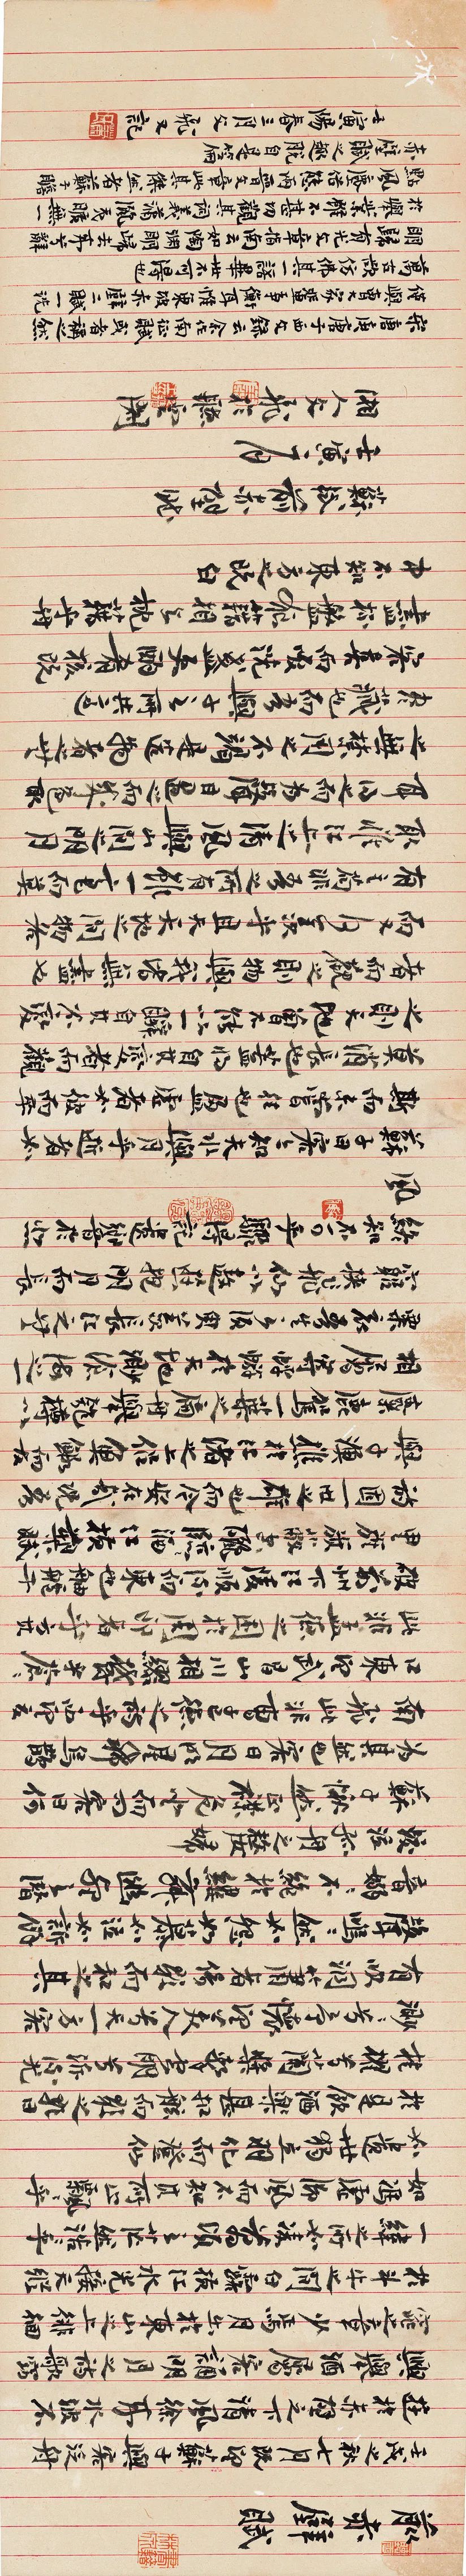 前赤壁賦
壬戌之秋七月既望蘇子與客泛舟
遊於赤壁之下清風徐來水波不
興舉酒屬客誦明月之詩歌窈
窕之章少焉月出於東山之上徘徊
於斗牛之間白露橫江水光接天縱
一葦之所如凌萬頃之茫然浩浩乎
如馮虛御風而不知其所止飄飄乎
如遺世獨立羽化而登仙
於是飲酒樂甚扣舷而歌之歌曰
桂棹兮蘭槳擊空明兮泝流光
渺渺兮予懷望美人兮天一方客
有吹洞簫者倚歌而和之其
聲嗚嗚然如怨如慕如泣如訴餘
音嫋嫋不絕如縷舞幽壑之潛
蛟泣孤舟之嫠婦
蘇子愀然正襟危坐而問客曰何
為其然也客曰月明星稀烏鵲
南飛此非曹孟德之詩乎西望夏
口東望武昌山川相繆鬱乎蒼蒼
此非孟德之困於周郎者乎方其
破荊州下江陵順流而東也舳艫千
里旌旗蔽空釃酒臨江橫槊賦
詩固一世之雄也而今安在哉況吾
與子漁樵於江渚之上侶魚鰕而友
麋鹿駕一葉之扁舟舉匏樽以
相屬寄蜉蝣於天地渺滄海之一
粟哀吾生之須臾羨長江之無
窮挾飛仙以遨遊抱明月而長
終知不可乎驟得託遺響於悲
風
蘇子曰客亦知夫水與月乎逝者如
斯而未嘗往也盈虛者如彼而卒
莫消長也蓋將自其變者而觀
之則天地曾不能以一瞬自其不變
者而觀之則物與我皆無盡也
而又何羨乎且夫天地之間物各
有主苟非吾之所有雖一毫而莫
取惟江上之清風與山間之明月
耳得之而為聲目遇之而成色取
之無禁用之不竭是造物者之無
盡藏也而吾與子之所共適
客喜而笑洗盞更酌肴核既
盡杯盤狼藉相與枕藉乎舟
中不知東方之既白
蘇軾前赤壁賦
壬寅一月
湘人文飛於聽雪閣
宋唐庚唐子西文錄云余作南征賦或者稱之然
僅與曹大家輩爭衡耳惟東坡赤壁二賦一洗
萬古欲仿佛其一語畢世不可得也
明歸有光文章指南云如陶淵明歸去來兮辭
於舉業雖不甚切觀其詞義瀟灑夷曠無一
點風塵俗態兩晉文章此其傑然者蘇子瞻
赤壁賦之趣脫自是篇
壬寅陽春三月文飛又記